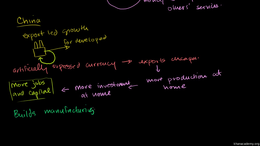 money
others' services.
China
export led growth
for developed
artificially depressed currency → exports cheaper
more production at
home
← more investment
at home
more jobs
and capital
Builds manufacturing